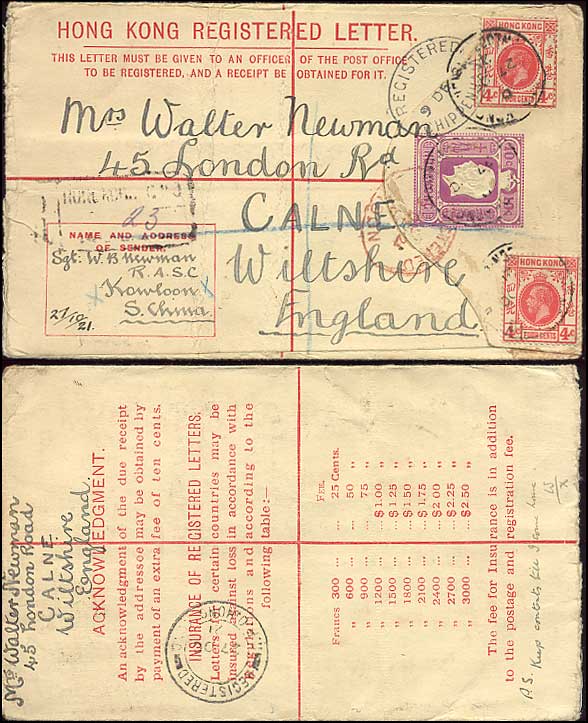 HONG KONG REGISTERED LETTER.
THIS LETTER MUST BE GIVEN TO AN OFFICER OF THE POST OFFICE
TO BE REGISTERED, AND A RECEIPT BE OBTAINED FOR IT.
HONG KONG
4c FOUR CENTS 4c
REGISTERED
Mrs Walter Newman
45 London Rd
CALNE
Wiltshire
England
23
NAME AND ADDRESS
OF SENDER.
Sgt. W. B Newman
R.A.S.C
Kowloon
S. China
27/10/21.
HONG KONG
4c FOUR CENTS 4c
Mrs Walter Newman
45 London Road
CALNE
Wiltshire
England
ACKNOWLEDGMENT.
An acknowledgment of the due receipt
by the addressee may be obtained by
payment of an extra fee of ten cents.
INSURANCE OF REGISTERED LETTERS.
Letters for certain countries may be
insured against loss in accordance with
Regulations and according to the
following table:—
FEE.
Francs 300 ... 25 Cents.
" 600 ... 50 "
" 900 ... 75 "
" 1200 ... $1.00 "
" 1500 ... $1.25 "
" 1800 ... $1.50 "
" 2100 ... $1.75 "
" 2400 ... $2.00 "
" 2700 ... $2.25 "
" 3000 ... $2.50 "
The fee for Insurance is in addition
to the postage and registration fee.
P.S. Keep contents till I come home
REGISTERED